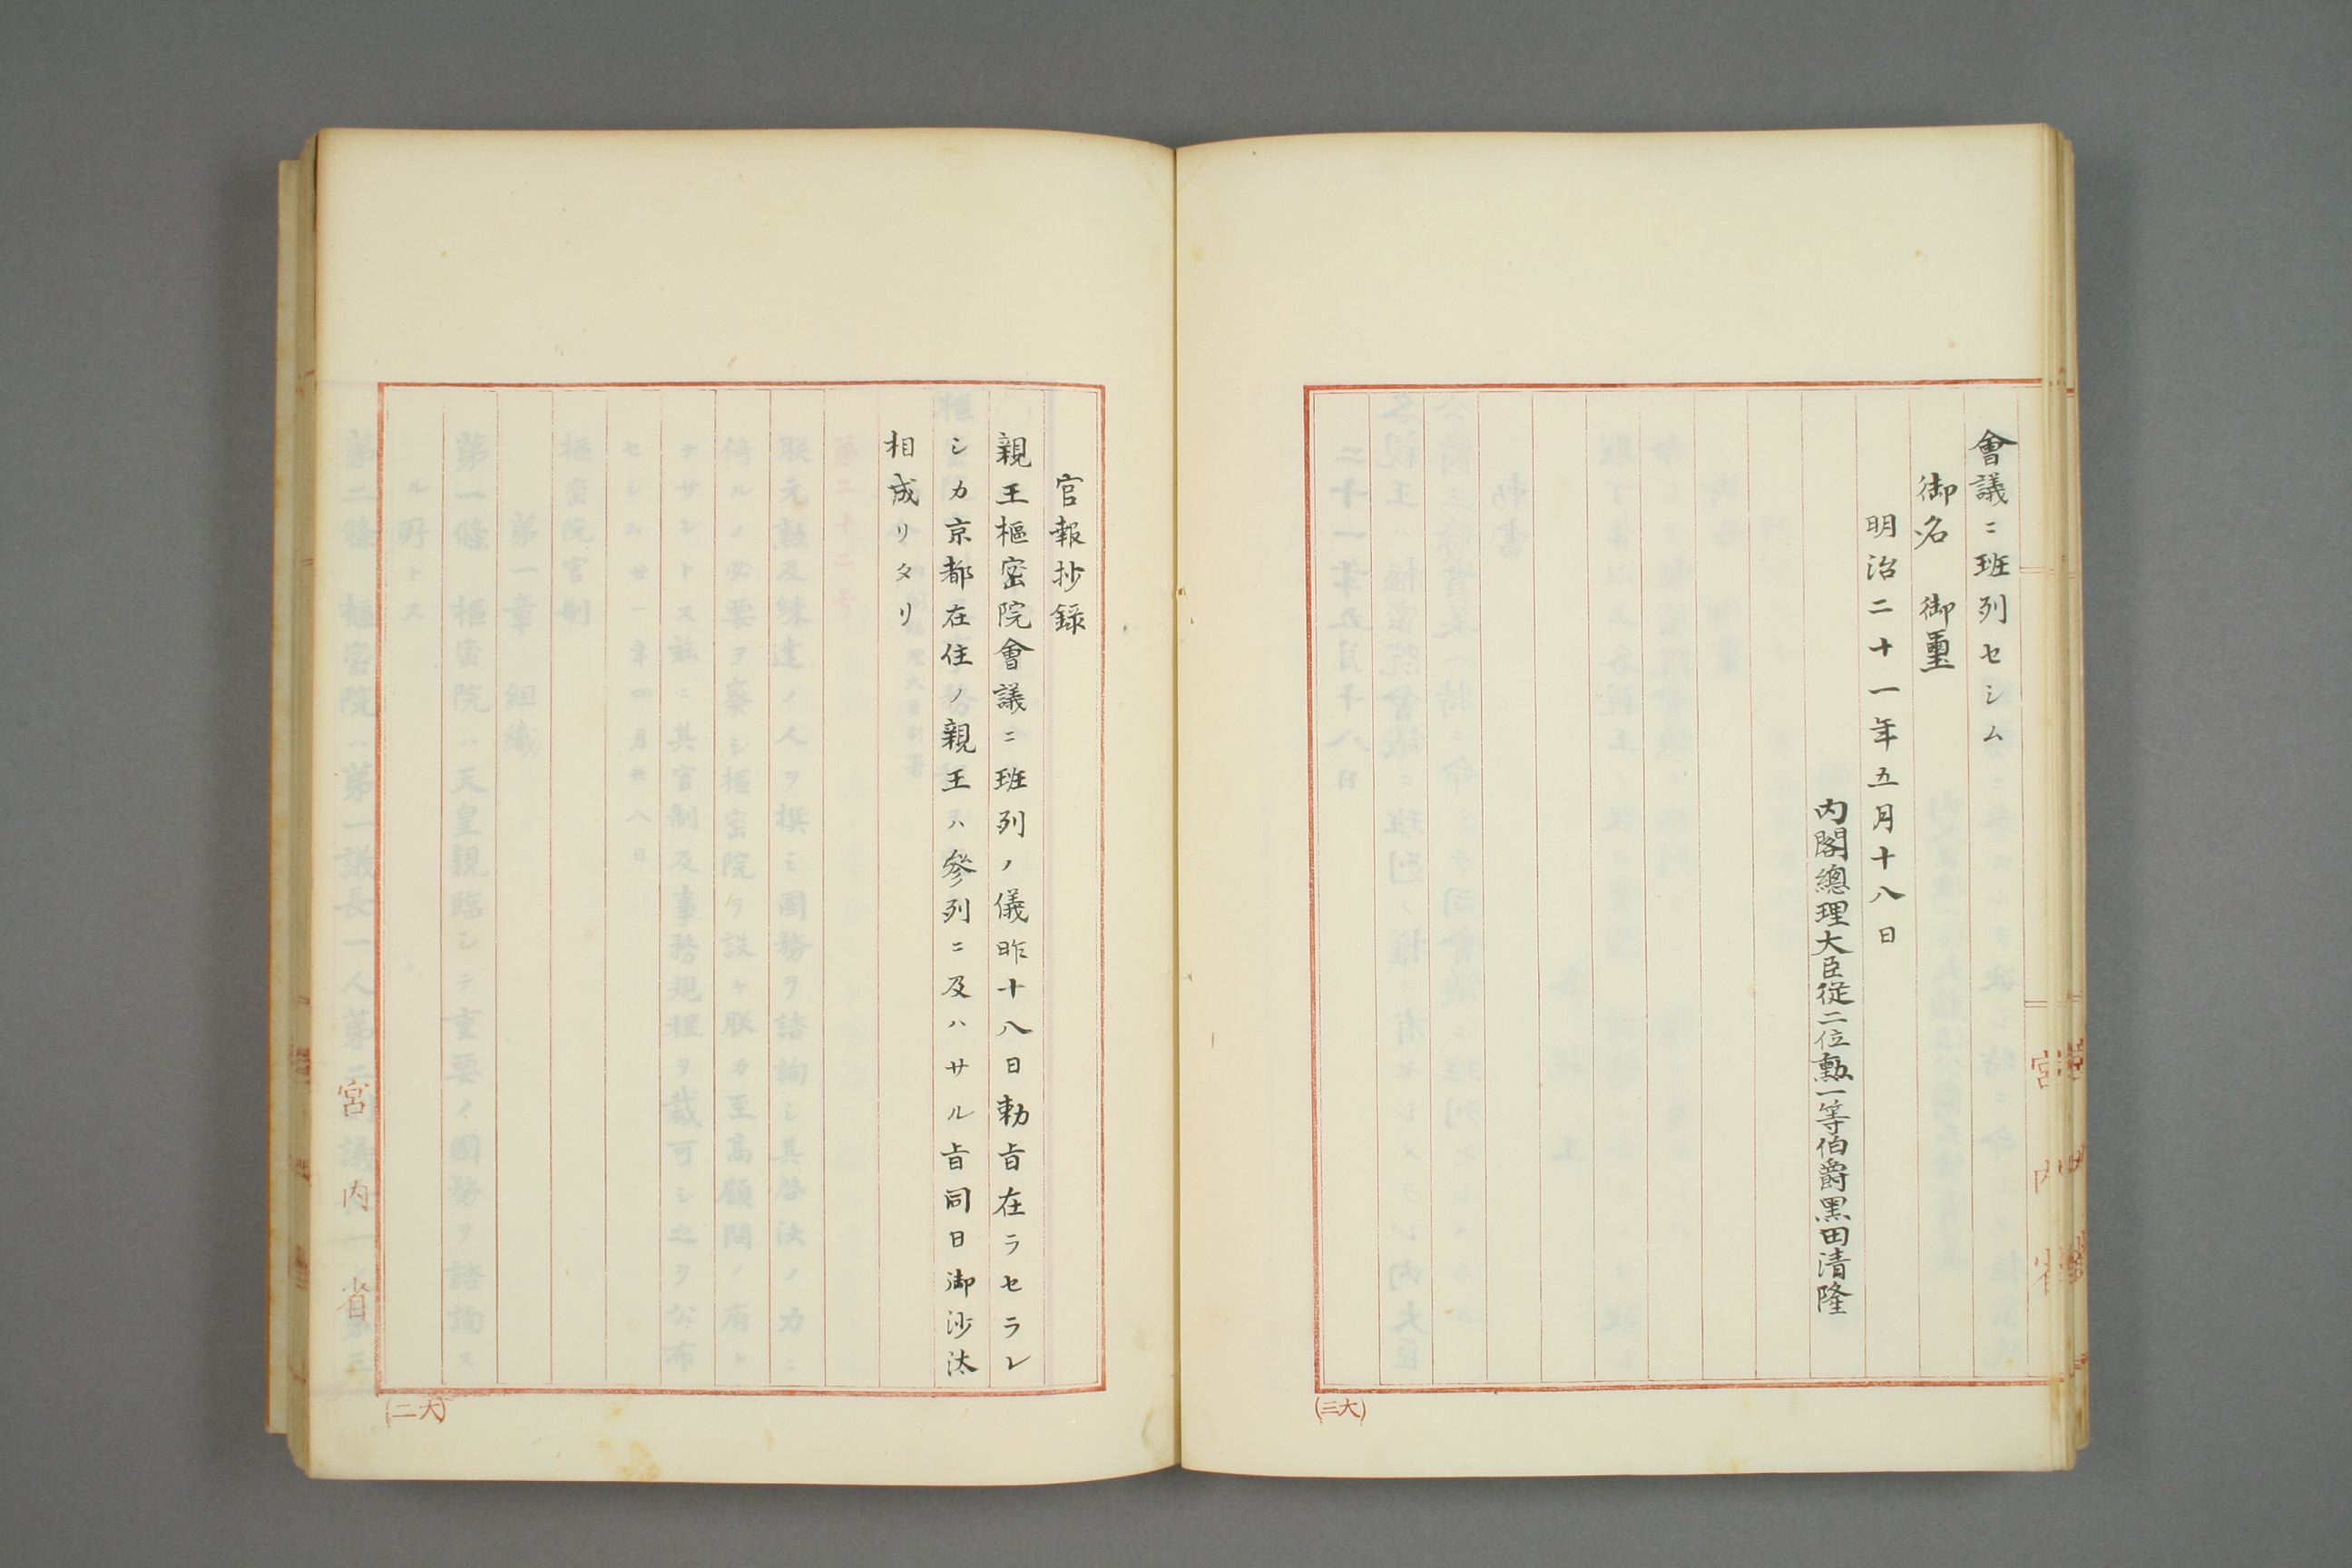 會議ニ班列セシム
御名 御璽
明治二十一年五月十八日
内閣總理大臣従二位勲一等伯爵黒田清隆
宮内省
(大三)
官報抄録
親王樞密院會議ニ班列ノ儀昨十八日勅旨在ラセラレ
シカ京都在住ノ親王ハ參列ニ及ハサル旨同日御沙汰
相成リタリ
宮内省
(大二)